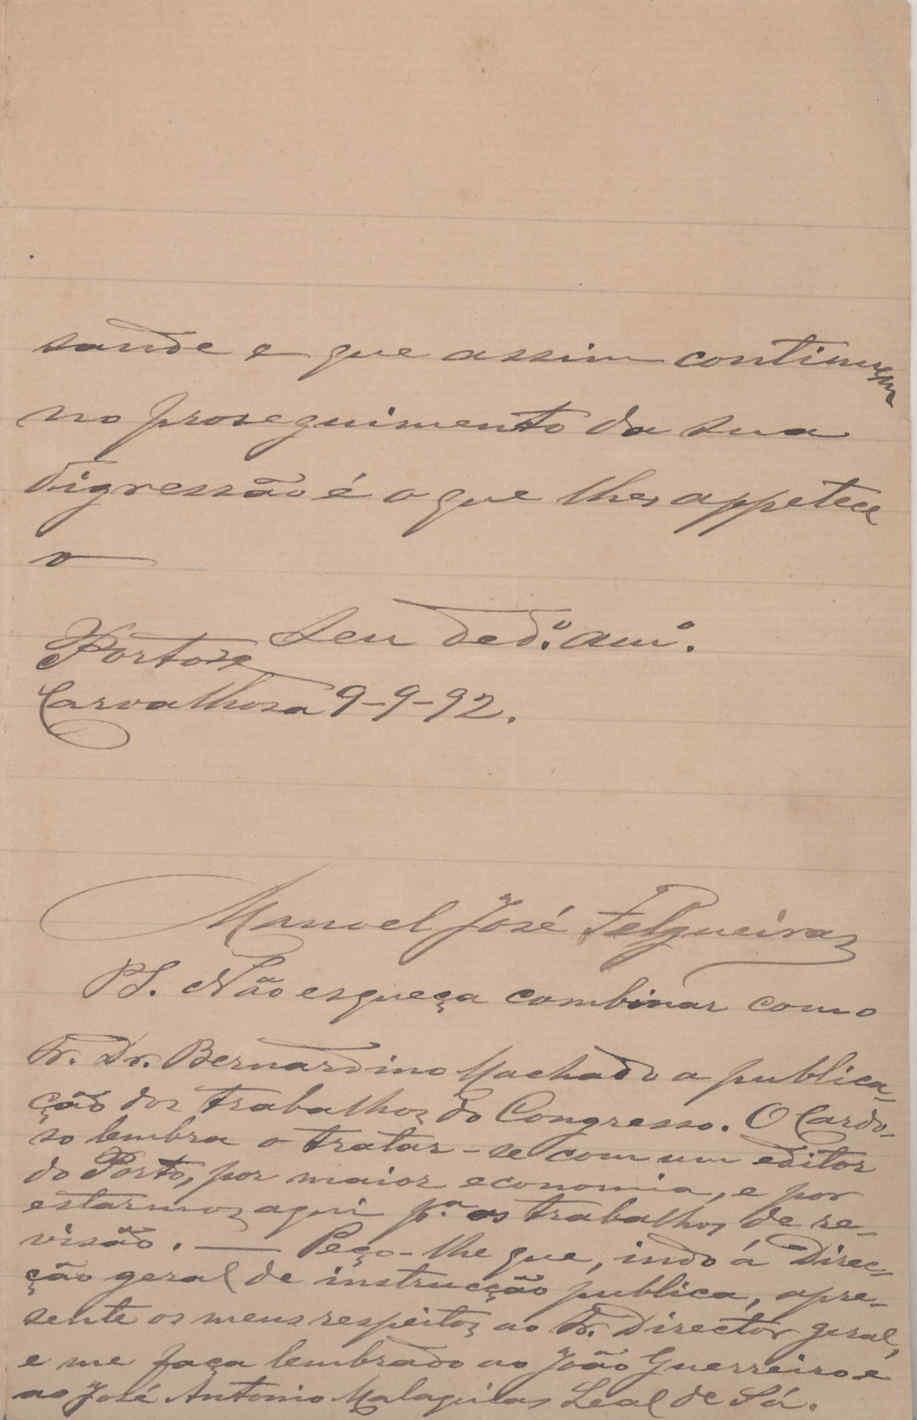 saude e que assim continuem
no proseguimento da sua
digressão é o que lhes appetece
o
Seu ded.º am.º
Porto se
Carvalhosa 9-9-92.
Manoel José Felgueiras
PS. Não esqueça combinar com o
Sr. Dr. Bernardino Machado a publica-
ção dos trabalhos do Congresso. O Cardo-
so lembra o tratar-se com um editor
do Porto, por maior economia, e por
estarmos aqui p.ª os trabalhos de re-
visão. — Peço-lhe que, indo á Direc-
ção geral de instrucção publica, apre-
sente os meus respeitos ao Sr. Director geral,
e me faça lembrado ao João Guerreiro e
ao José Antonio Leal de Sá.